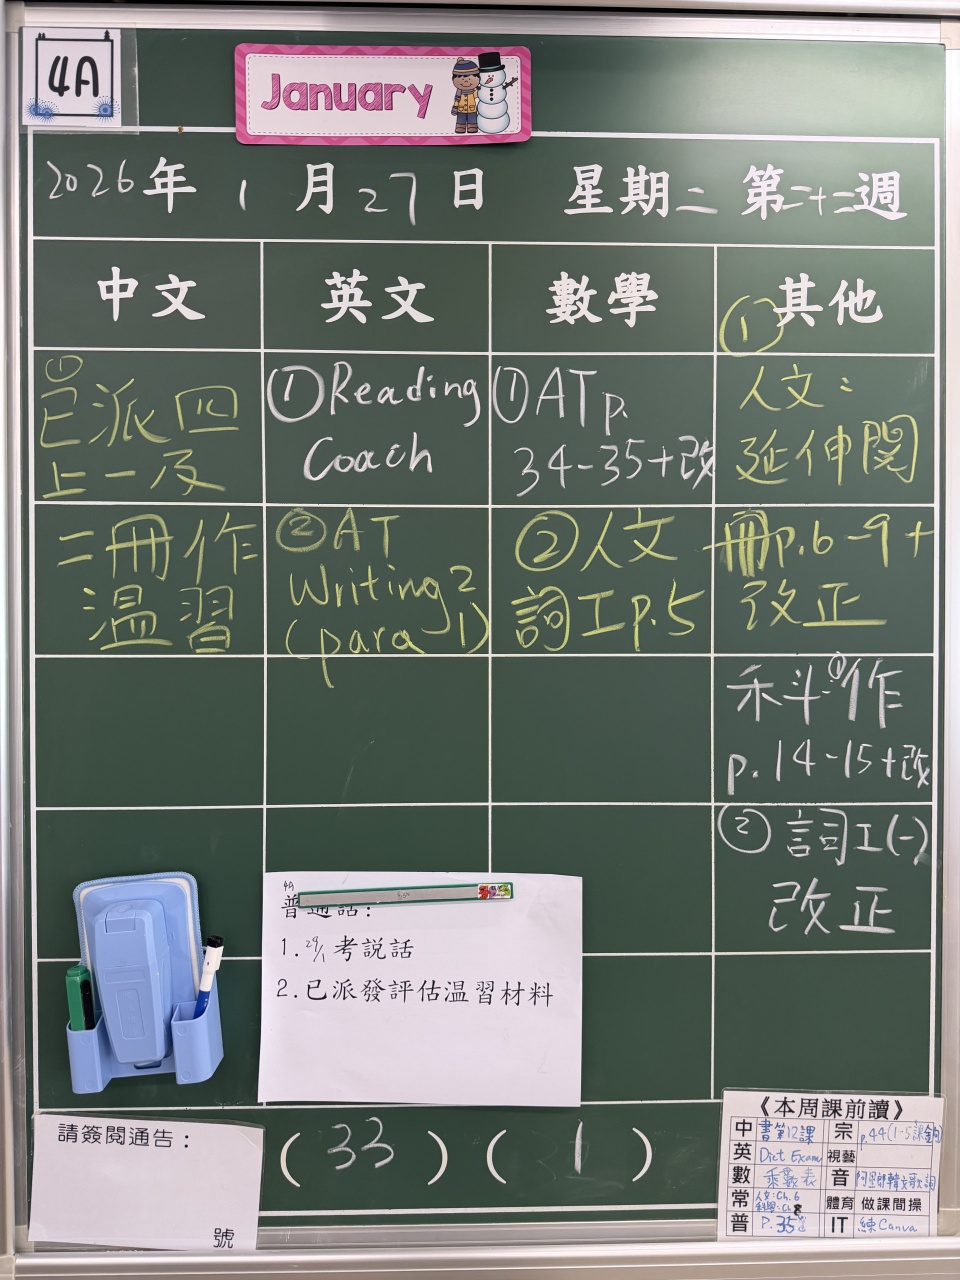 4A
January
2026年1月27日 星期二 第二十二週
中文
英文
數學
①其他
①
已派四
上一及
二冊作
溫習
①Reading
Coach
②AT
Writing2
(para 1)
①AT p.
34-35+改
②人文
詞工p.5
人文:
延伸閱
冊p.6-9+
改正
科:①作
p.14-15+改
②詞工(一)
改正
4A
普通話:
1.29/1考說話
2.已派發評估溫習材料
請簽閱通告:
號
(33)(1)
《本周課前讀》
中 書第12課 宗 p.44(1-5課金句)
英 Dict Exam 視藝
數 乘數表 音
常 人文:Ch.6 體育 做課間操
科學:Ch.8
普 P.35 IT 練Canva